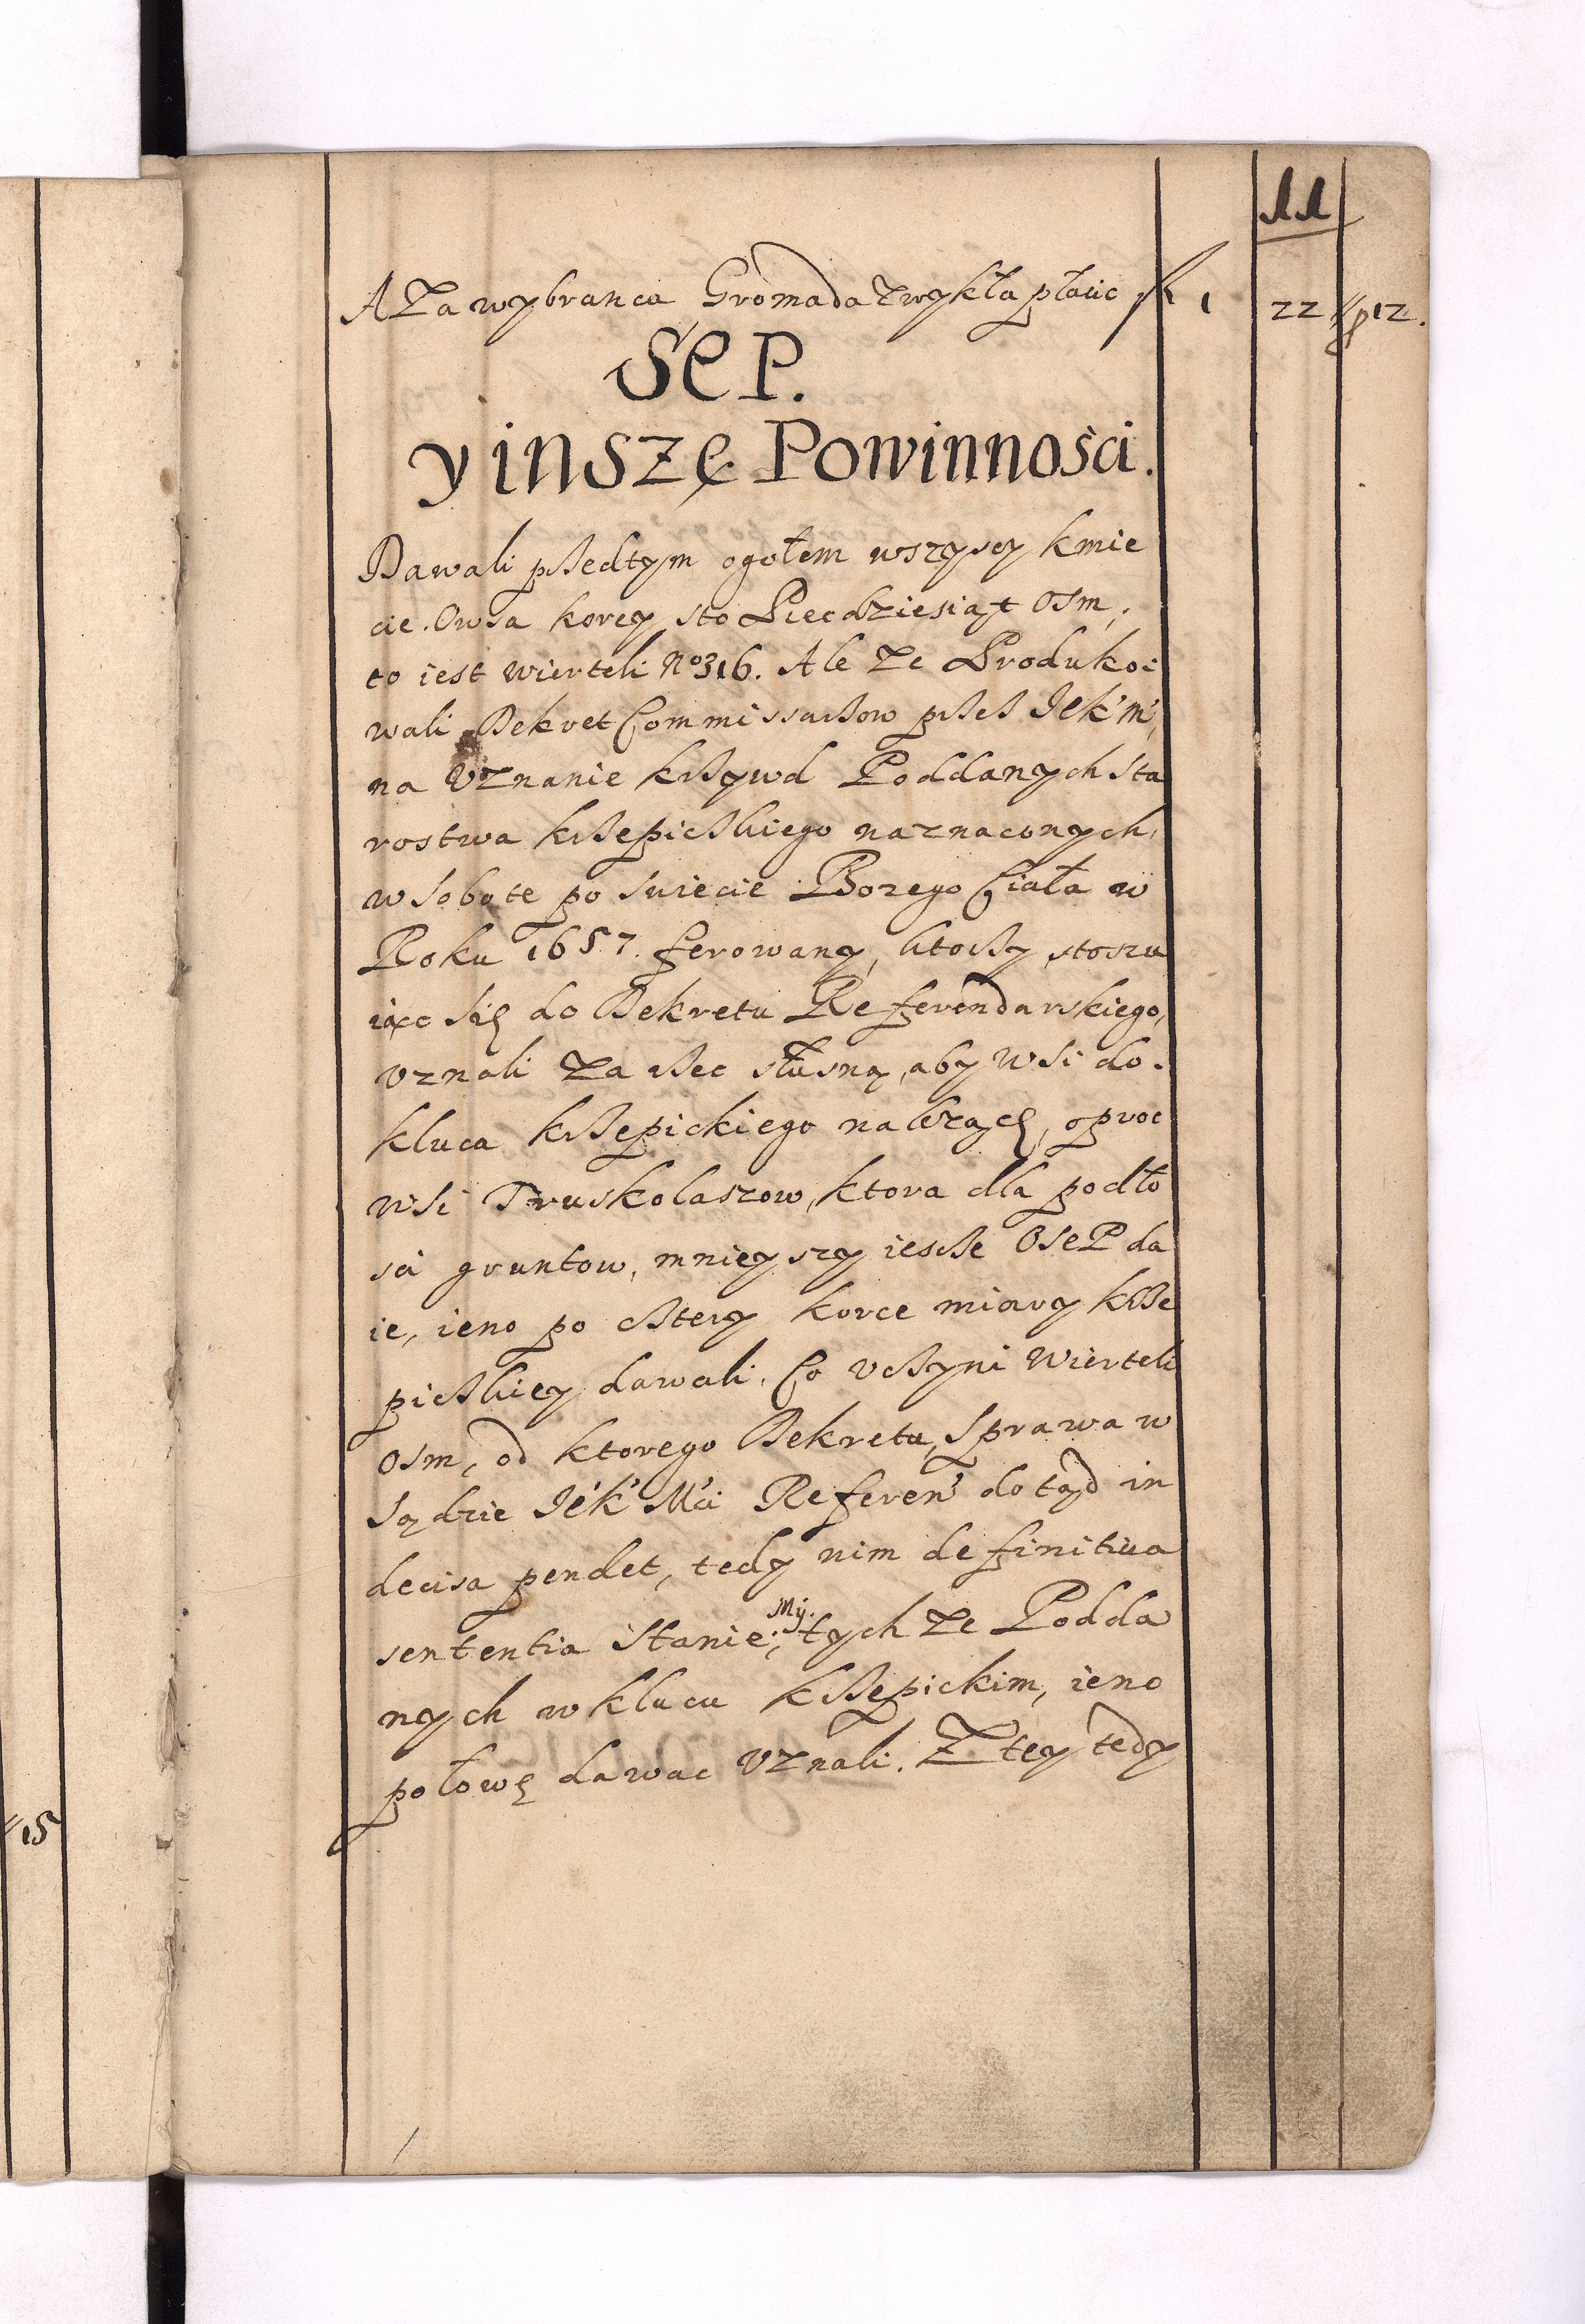 11
A Za wybranca Gromada zwykła płacic fl 1 22 p 12.
SeP.
y inszę Powinnośći.
Dawali pßedtym ogołem wszyscy kmie
cie. Owsa korcy sto Piecdziesiąt osm,
to iest wierteli No 316. Ale Ze Produkoi
wali Dekret Commissarßow pßeß JeK'm',
na Vznanie kßywd Poddanych sta
rostwa kßepickiego naznaconych,
w sobote po swiecie Bozego Ciała w
Roku 1657. ferowany, ktoßy stoszu
iąc się do Dekretu Referendarskiego,
vznali Za ßec słusną, aby wsi do.
kluca kßepickiego nalezącę, oproc
wsi Truskolaszow, ktora dla podło
sci gruntow, mnieyszy iescße OseP da
ie, ieno po cßtery korce miary kßße
pickiey dawali. Co vcßyni wierteli
osm, od ktorego Dekretu, sprawa w
Sądzie JéK' M'ci Referen' dotąd in
decisa pendet, tedy nim definitiua
sententia stanie; My. tych Ze Podda
nych w klucu kßepickim, ieno
połowę dawac vznali. Z tey tedy
15